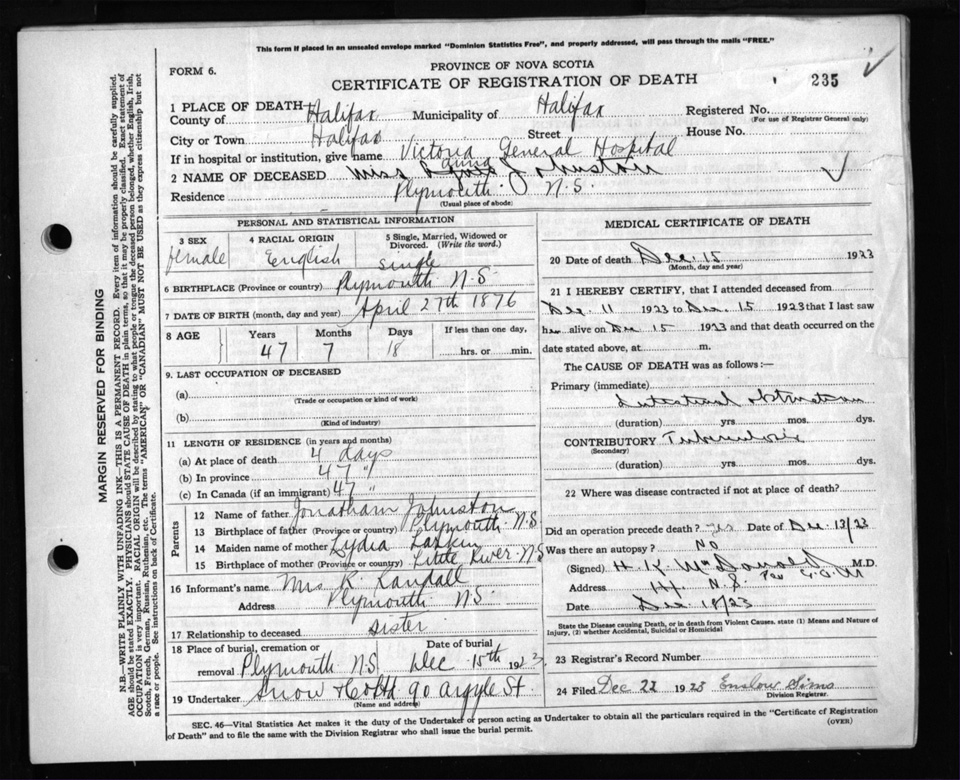 This form if placed in an unsealed envelope marked "Dominion Statistics Free", and properly addressed, will pass through the mails "FREE."
FORM 6.
PROVINCE OF NOVA SCOTIA
CERTIFICATE OF REGISTRATION OF DEATH
235
1 PLACE OF DEATH—
County of Halifax Municipality of Halifax Registered No.
(For use of Registrar General only)
City or Town Halifax Street House No.
If in hospital or institution, give name Victoria General Hospital
2 NAME OF DECEASED Miss Anna Johnston
Residence Plymouth. N.S.
(Usual place of abode)
PERSONAL AND STATISTICAL INFORMATION
3 SEX female
4 RACIAL ORIGIN English
5 Single, Married, Widowed or Divorced. (Write the word.) Single
6 BIRTHPLACE (Province or country) Plymouth N.S
7 DATE OF BIRTH (month, day and year) April 27th 1876
8 AGE Years Months Days If less than one day,
47 7 18 hrs. or min.
9. LAST OCCUPATION OF DECEASED
(a)
(Trade or occupation or kind of work)
(b)
(Kind of industry)
11 LENGTH OF RESIDENCE (in years and months)
(a) At place of death 4 days
(b) In province 47 "
(c) In Canada (if an immigrant) 47 "
Parents
12 Name of father Jonathan Johnston
13 Birthplace of father (Province or country) Plymouth N.S
14 Maiden name of mother Lydia Larkin
15 Birthplace of mother (Province or country) Little River N.S
16 Informant's name Mrs R. Randall
Address Plymouth N.S.
17 Relationship to deceased Sister
18 Place of burial, cremation or removal Plymouth N.S. Date of burial Dec 15th 1923
19 Undertaker Snow & Co Ltd 90 Argyle St.
(Name and address)
MEDICAL CERTIFICATE OF DEATH
20 Date of death Dec. 15 1923
(Month, day and year)
21 I HEREBY CERTIFY, that I attended deceased from
Dec. 11 1923 to Dec. 15 1923 that I last saw
her alive on Dec 15 1923 and that death occurred on the
date stated above, at m.
The CAUSE OF DEATH was as follows:—
Primary (immediate)
Intestinal obstruction
(duration) yrs. mos. dys.
CONTRIBUTORY Tuberculosis
(Secondary)
(duration) yrs. mos. dys.
22 Where was disease contracted if not at place of death?
Did an operation precede death? yes Date of Dec 13/23
Was there an autopsy? No
(Signed) H. K. McDonald M.D.
Address Hx N.S.
Date Dec 18/23
State the Disease causing Death, or in death from Violent Causes. state (1) Means and Nature of Injury, (2) whether Accidental, Suicidal or Homicidal
23 Registrar's Record Number
24 Filed Dec 22 1923 Enslow Sims
Division Registrar.
SEC. 46—Vital Statistics Act makes it the duty of the Undertaker or person acting as Undertaker to obtain all the particulars required in the "Certificate of Registration
of Death" and to file the same with the Division Registrar who shall issue the burial permit.
(OVER)
MARGIN RESERVED FOR BINDING
N.B.—WRITE PLAINLY WITH UNFADING INK—THIS IS A PERMANENT RECORD. Every item of information should be carefully supplied.
AGE should be stated EXACTLY. PHYSICIANS should STATE CAUSE OF DEATH in plain terms, so that it may be properly classified. Exact statement of
OCCUPATION is very important. RACIAL ORIGIN will be described by stating to what people or tongue the deceased person belonged, whether English, Irish,
Scotch, French, German, Russian, Ruthenian, etc. The terms "AMERICAN" OR "CANADIAN" MUST NOT BE USED as they express citizenship but not
a race or people. See instructions on back of Certificate.